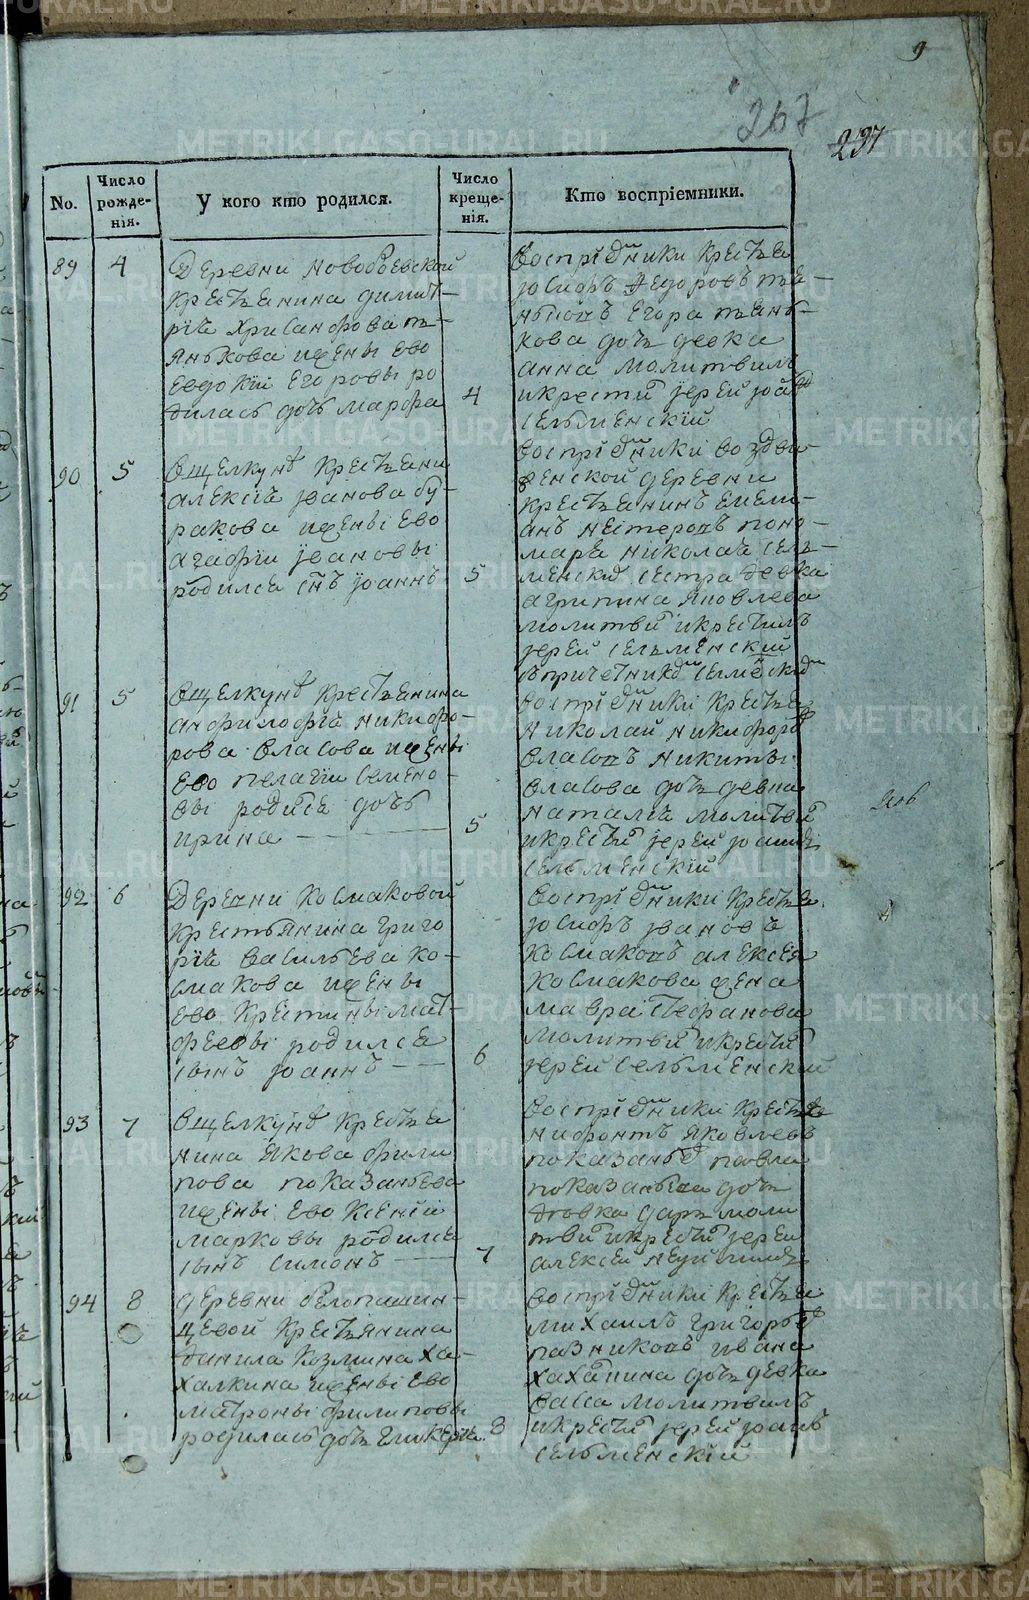 9
267
237
No.
Число рожде-нія.
У кого кто родился.
Число креще-нія.
Кто воспріемники.
89 4
Деревни новобоевской
крестьянина димит-
рїя хрисанфова пь-
янькова ижены ево
евдокїи егоровы ро
дилась дочь марфа 4
Воспрїемники крестья
іосифъ Федоровъ пья-
ньковъ егора пьянь-
кова дочь девка
анна молитвилъ
икрести іерей
сельменскїй
90 5
Вщелкунѣ крестьяни
алексїя іванова бу-
ракова ижены ево
агафїи івановы
родился снъ іоаннъ 5
Воспрїемники воздви-
женской деревни
крестьянинъ емели-
анъ нестеровъ поно-
маря николая сель-
сестра девка
агрипина яковлева
молитви икрестилъ
іерей сельменский
91 5
Вщелкунѣ крестьянина
анфилофїя никифо-
рова власова ижены
ево пелагїи семено-
вы родися дочь
ирина 5
Воспрїемники крестья
николай никифоров
власовъ никиты
власова дочь девка
наталья молитви
икрести іерей
сельменскїй
92 6
Деревни космаковой
крестьянина григо
рїя васильева ко-
смакова ижены
ево крестины мат-
феевы родился
сынъ іоаннъ 6
Воспрїемники крестья
іосифъ івановъ
космаковъ алексея
космакова жена
мавра стефанова
молитви икрести
іерей сельменский
93 7
Вщелкунѣ крестья
нина якова фили
пова показаньева
ижены ево ксенїи
марковы родился
сынъ симонъ 7
Воспрїемники крестья
нифонтъ яковлевъ
павла
показаньева дочь
девка дарья моли
тви икрести іерей
алексей
94 8
деревни белопашин-
цевой крестьянина
данила козмина ха-
халкина ижены ево
матроны филиповы
родилась дочь гликерїя 8
Воспрїемники крестья
михаилъ григорьев
пазниковъ ивана
дочь девка
васса молитвилъ
икрести іерей
сельменскїй
METRIKI.GASO-URAL.RU